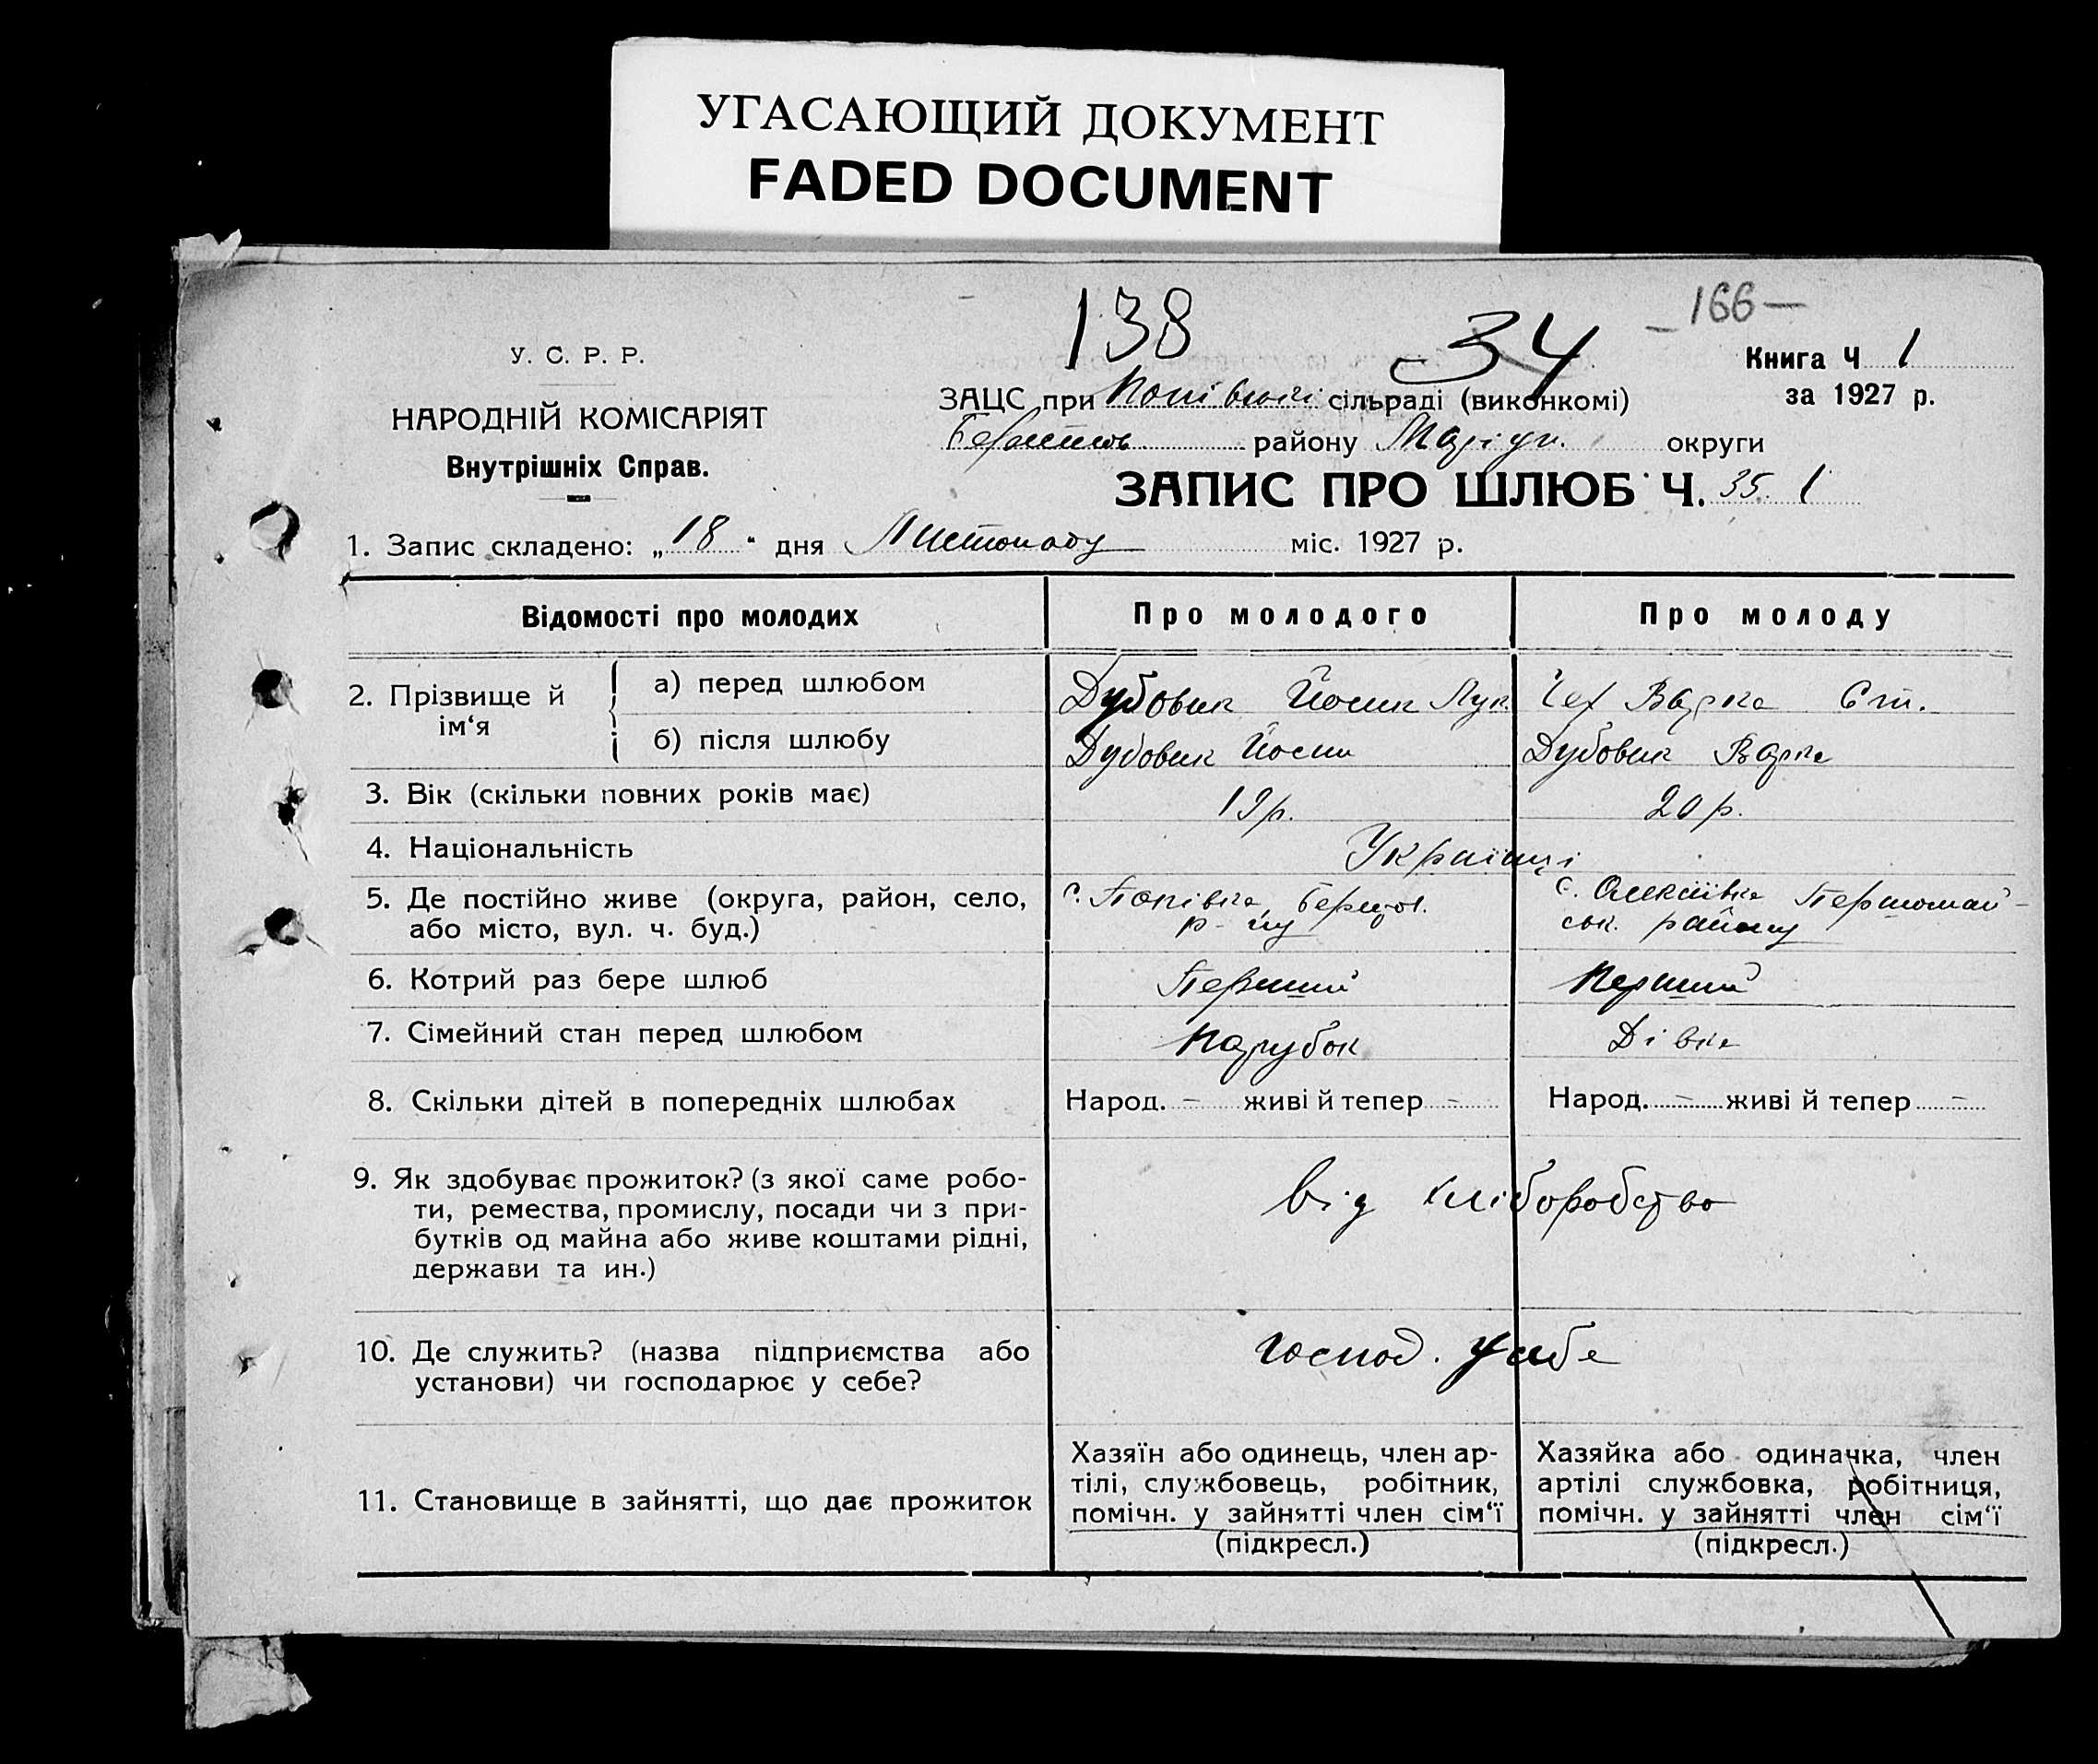 УГАСАЮЩИЙ ДОКУМЕНТ
FADED DOCUMENT
138
34
166
У. С. Р. Р.
НАРОДНІЙ КОМІСАРІЯТ
Внутрішніх Справ.
Книга Ч 1
за 1927 р.
ЗАЦС при сільраді (виконкомі)
району Маріуп. округи
ЗАПИС ПРО ШЛЮБ Ч. 35. 1
1. Запис складено: „18“ дня Листопаду міс. 1927 р.
Відомості про молодих Про молодого Про молоду
2. Прізвище й ім‘я
а) перед шлюбом Дубовик Йосип Лук. Чех Варка Єт.
б) після шлюбу Дубовик Йосип Дубовик Варка
3. Вік (скільки повних років має) 19 р. 20 р.
4. Національність Українці
5. Де постійно живе (округа, район, село, с. Попівка с. Олексіївка Першомай-
або місто, вул. ч. буд.) р-ну ськ. району
6. Котрий раз бере шлюб Перший Перший
7. Сімейний стан перед шлюбом Парубок Дівка
8. Скільки дітей в попередніх шлюбах Народ. - живі й тепер - Народ. - живі й тепер -
9. Як здобуває прожиток? (з якої саме робо-
ти, ремества, промислу, посади чи з при-
бутків од майна або живе коштами рідні,
держави та ин.)
від хліборобство
10. Де служить? (назва підприємства або
установи) чи господарює у себе?
Господ. у себе
11. Становище в зайнятті, що дає прожиток
Хазяїн або одинець, член ар-
тілі, службовець, робітник,
помічн. у зайнятті член сім‘ї
(підкресл.)
Хазяйка або одиначка, член
артілі службовка, робітниця,
помічн. у зайнятті член сім‘ї
(підкресл.)